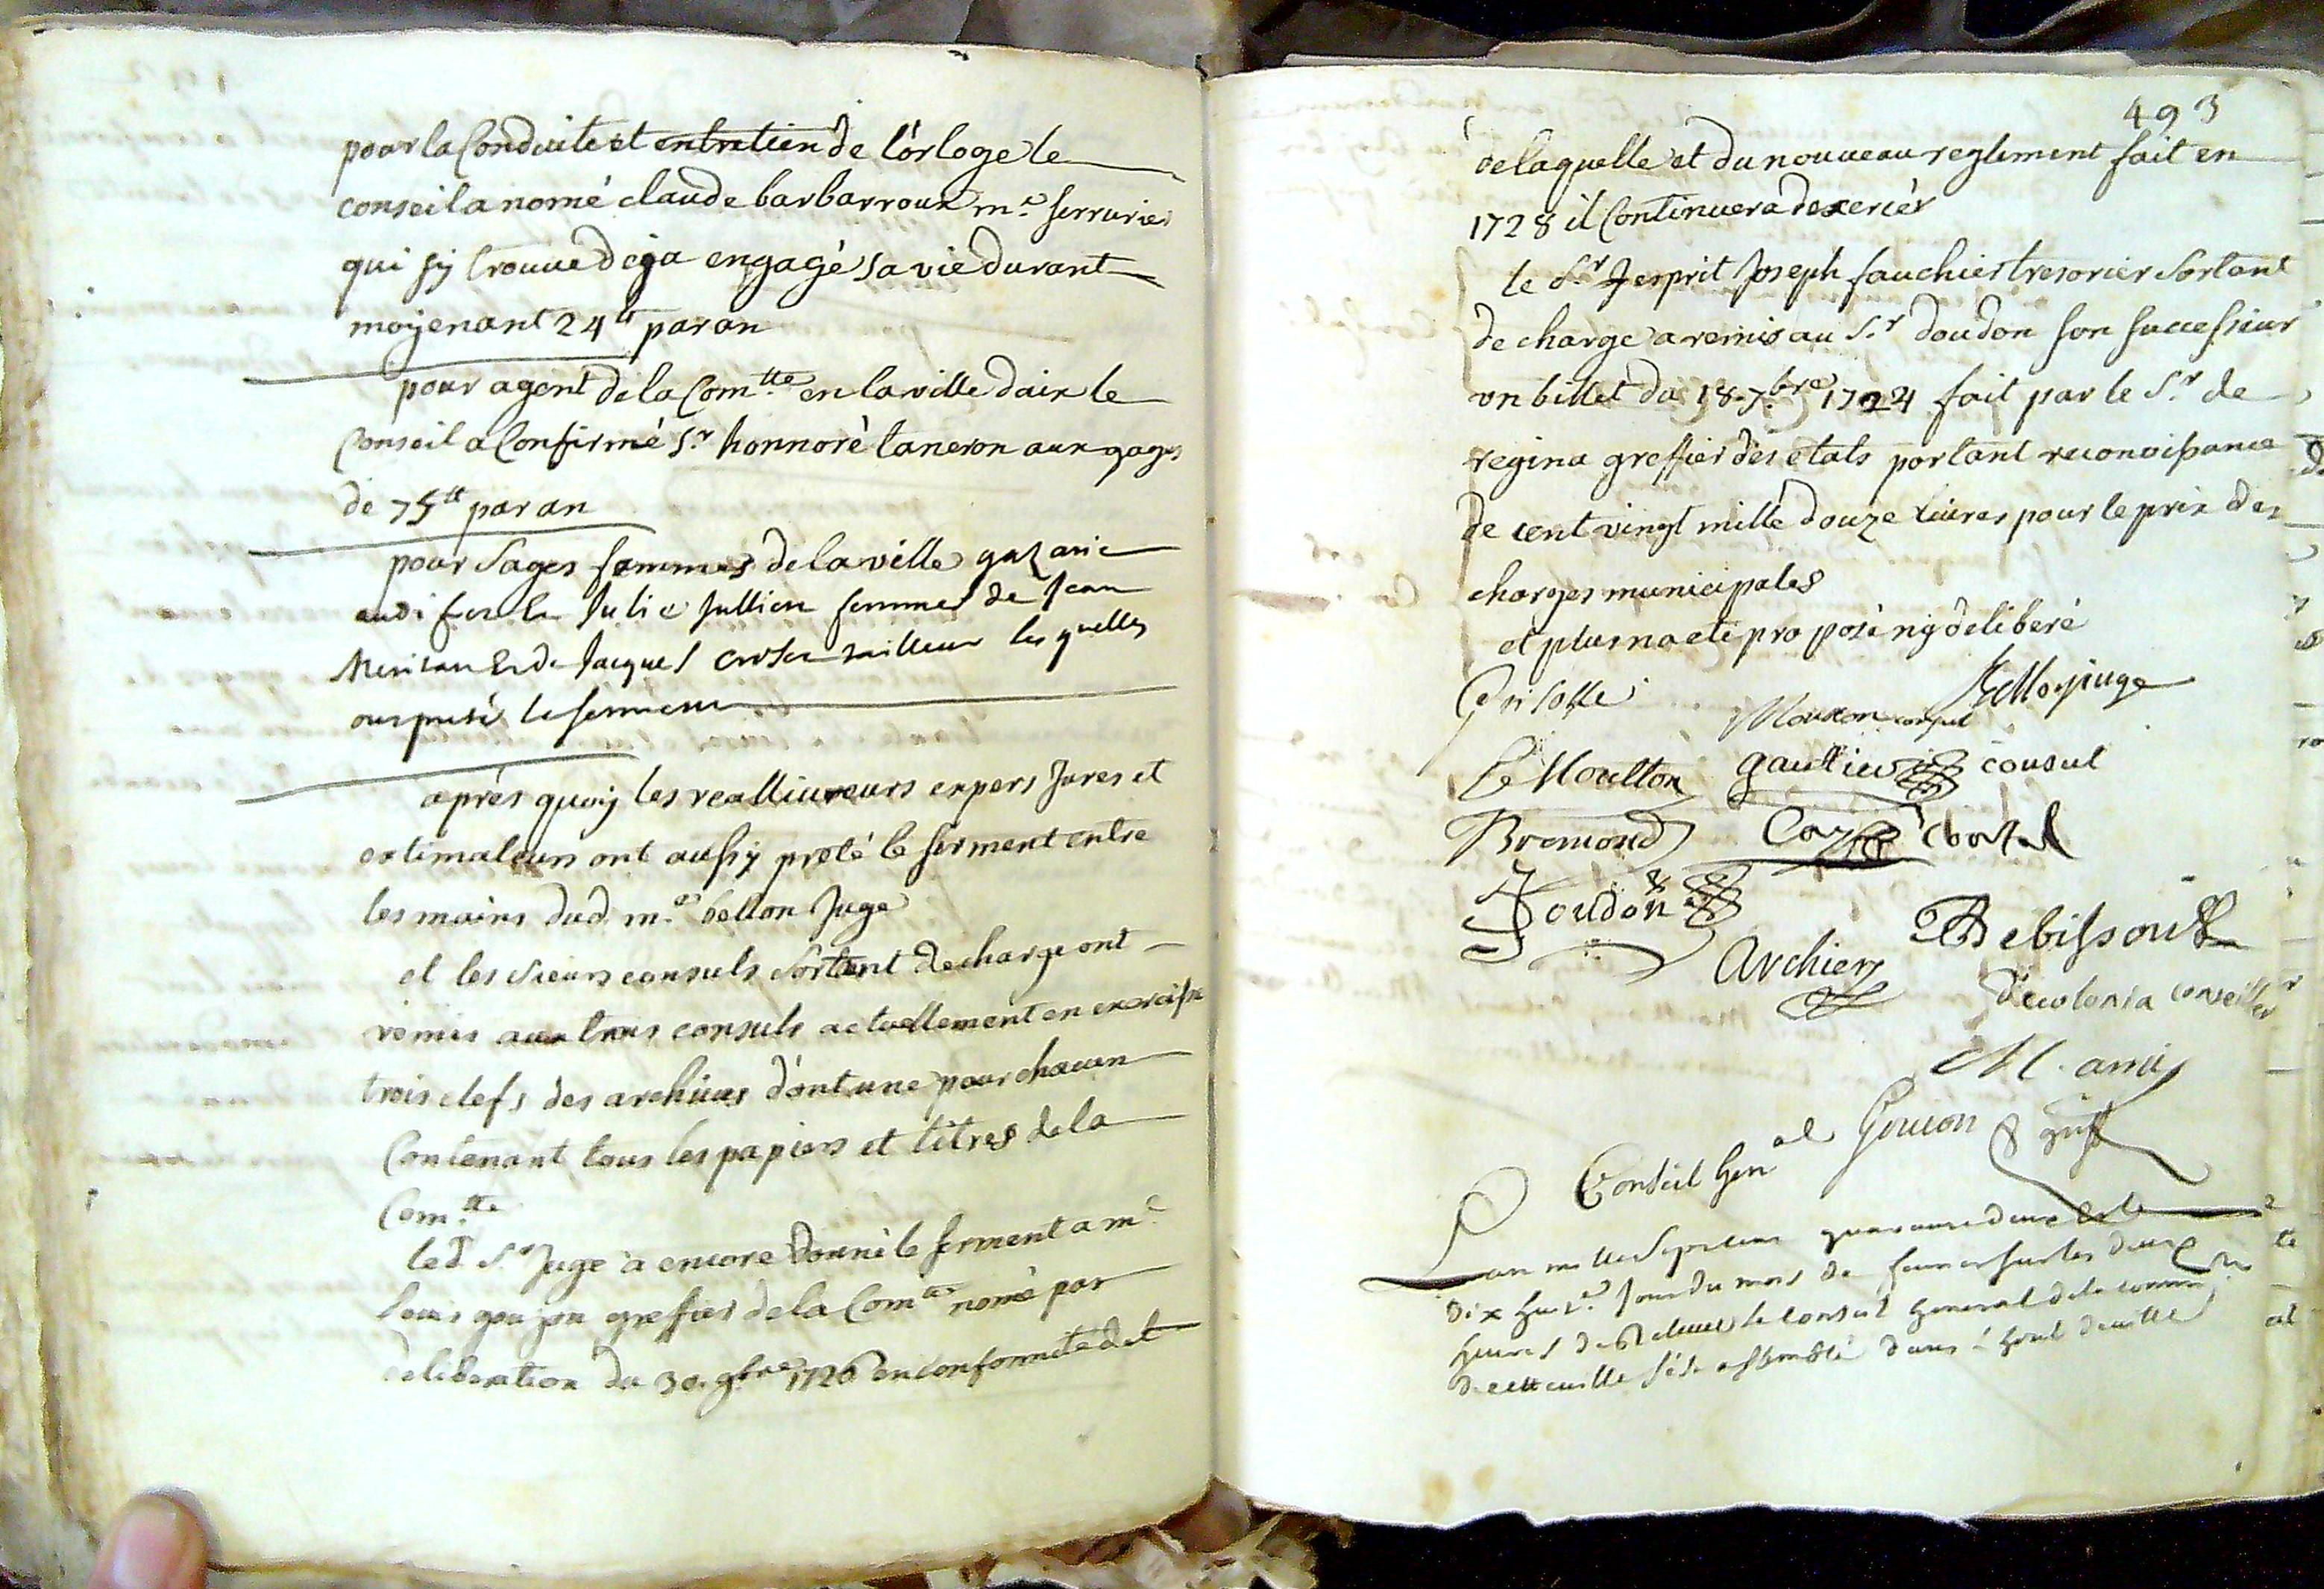 pour la Conduite et entretien de l'orloge le
conseil a nomé claude barbarroux m.e serrurier
qui sy trouve deja engagé sa vie durant
moyenant 24tt par an
pour agent de la Com.tté en la ville daix le
Conseil a Confirmé S.r honnoré taneron aux gages
de 75tt par an
pour sages femmes de la ville
Julie Jullien femmes de Jean
de Jacques tailleur les quelles
ont presté le serment
aprés quoy les reallivreurs expers Jures et
estimateurs ont aussy preté le serment entre
les mains dud. m.e bellon Juge
et les sieurs consuls sortant de charge ont
remis aux trois consuls actuellement en exercisse
trois clefs des archives dont une pour chacun
Contenant tous les papiers et titres de la
Com.tté
led. S.r Juge a encore donné le serment a m.e
Louis goujon greffier de la Com.té nomé par
deliberation du 30. 9bre 1726 en conformité de
493
de laquelle et du nouveau reglement fait en
1728 il Continuera dexercér
le S.r Jesprit Joseph fauchier tresorier sortant
de charge a remis au S.r doudon son successeur
un billet du 18. 7.bre 1724 fait par le S.r de
regina greffier des etats portant reconoissance
de cent vingt mille douze livres pour le prix des
charges municipales
et plus na eté proposé ny deliberé
juge
consul
gautier consul
Bremond
doudon
Archier
decolonia conseiller
M. amic
Goujon greff
Conseil Gen.al
Lan mille sept cens quarante deux et le
dix huit.e Jour du mois de sur les deux
heures de le conseil general de la comm.té
de cette ville sest assemblé dans l'hotel de ville